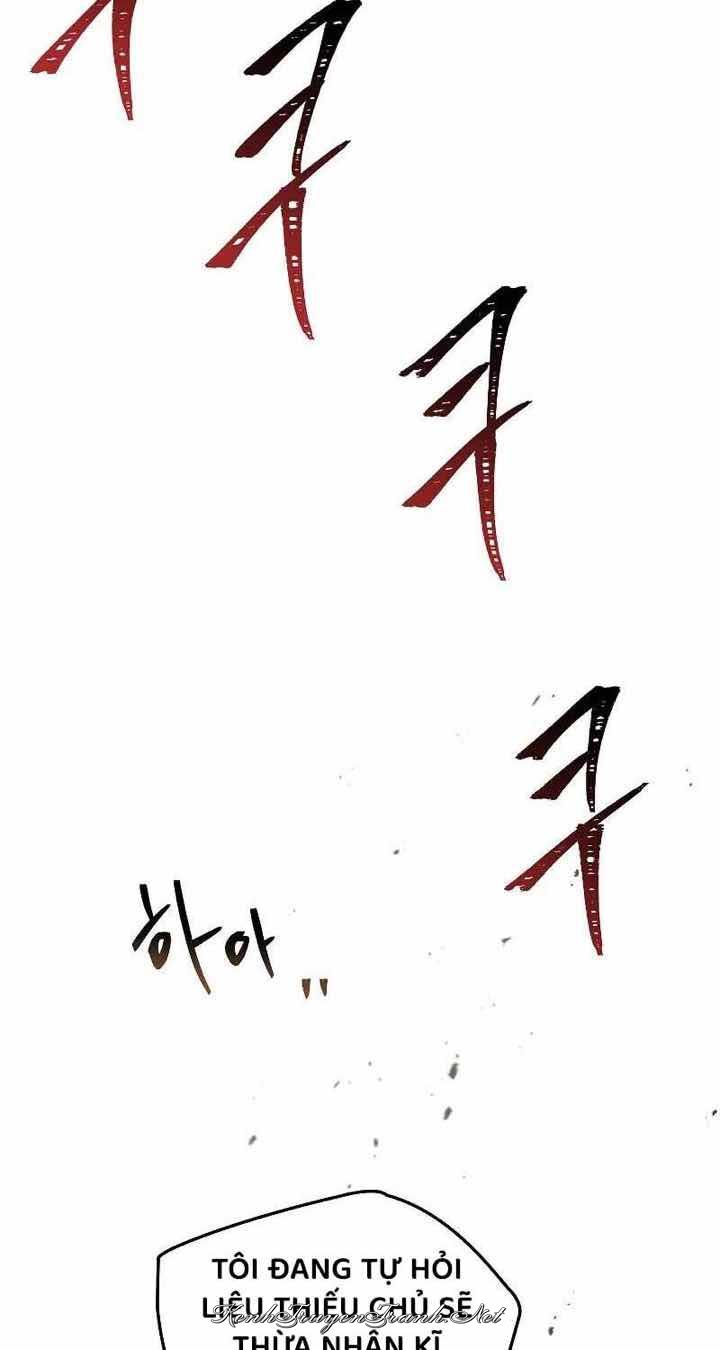 크
크
크
하아
"
TÔI ĐANG TỰ HỎI
LIỆU THIẾU CHỦ SẼ
KenhTruyenTranh.Net
THỪA NHẬN KĨ